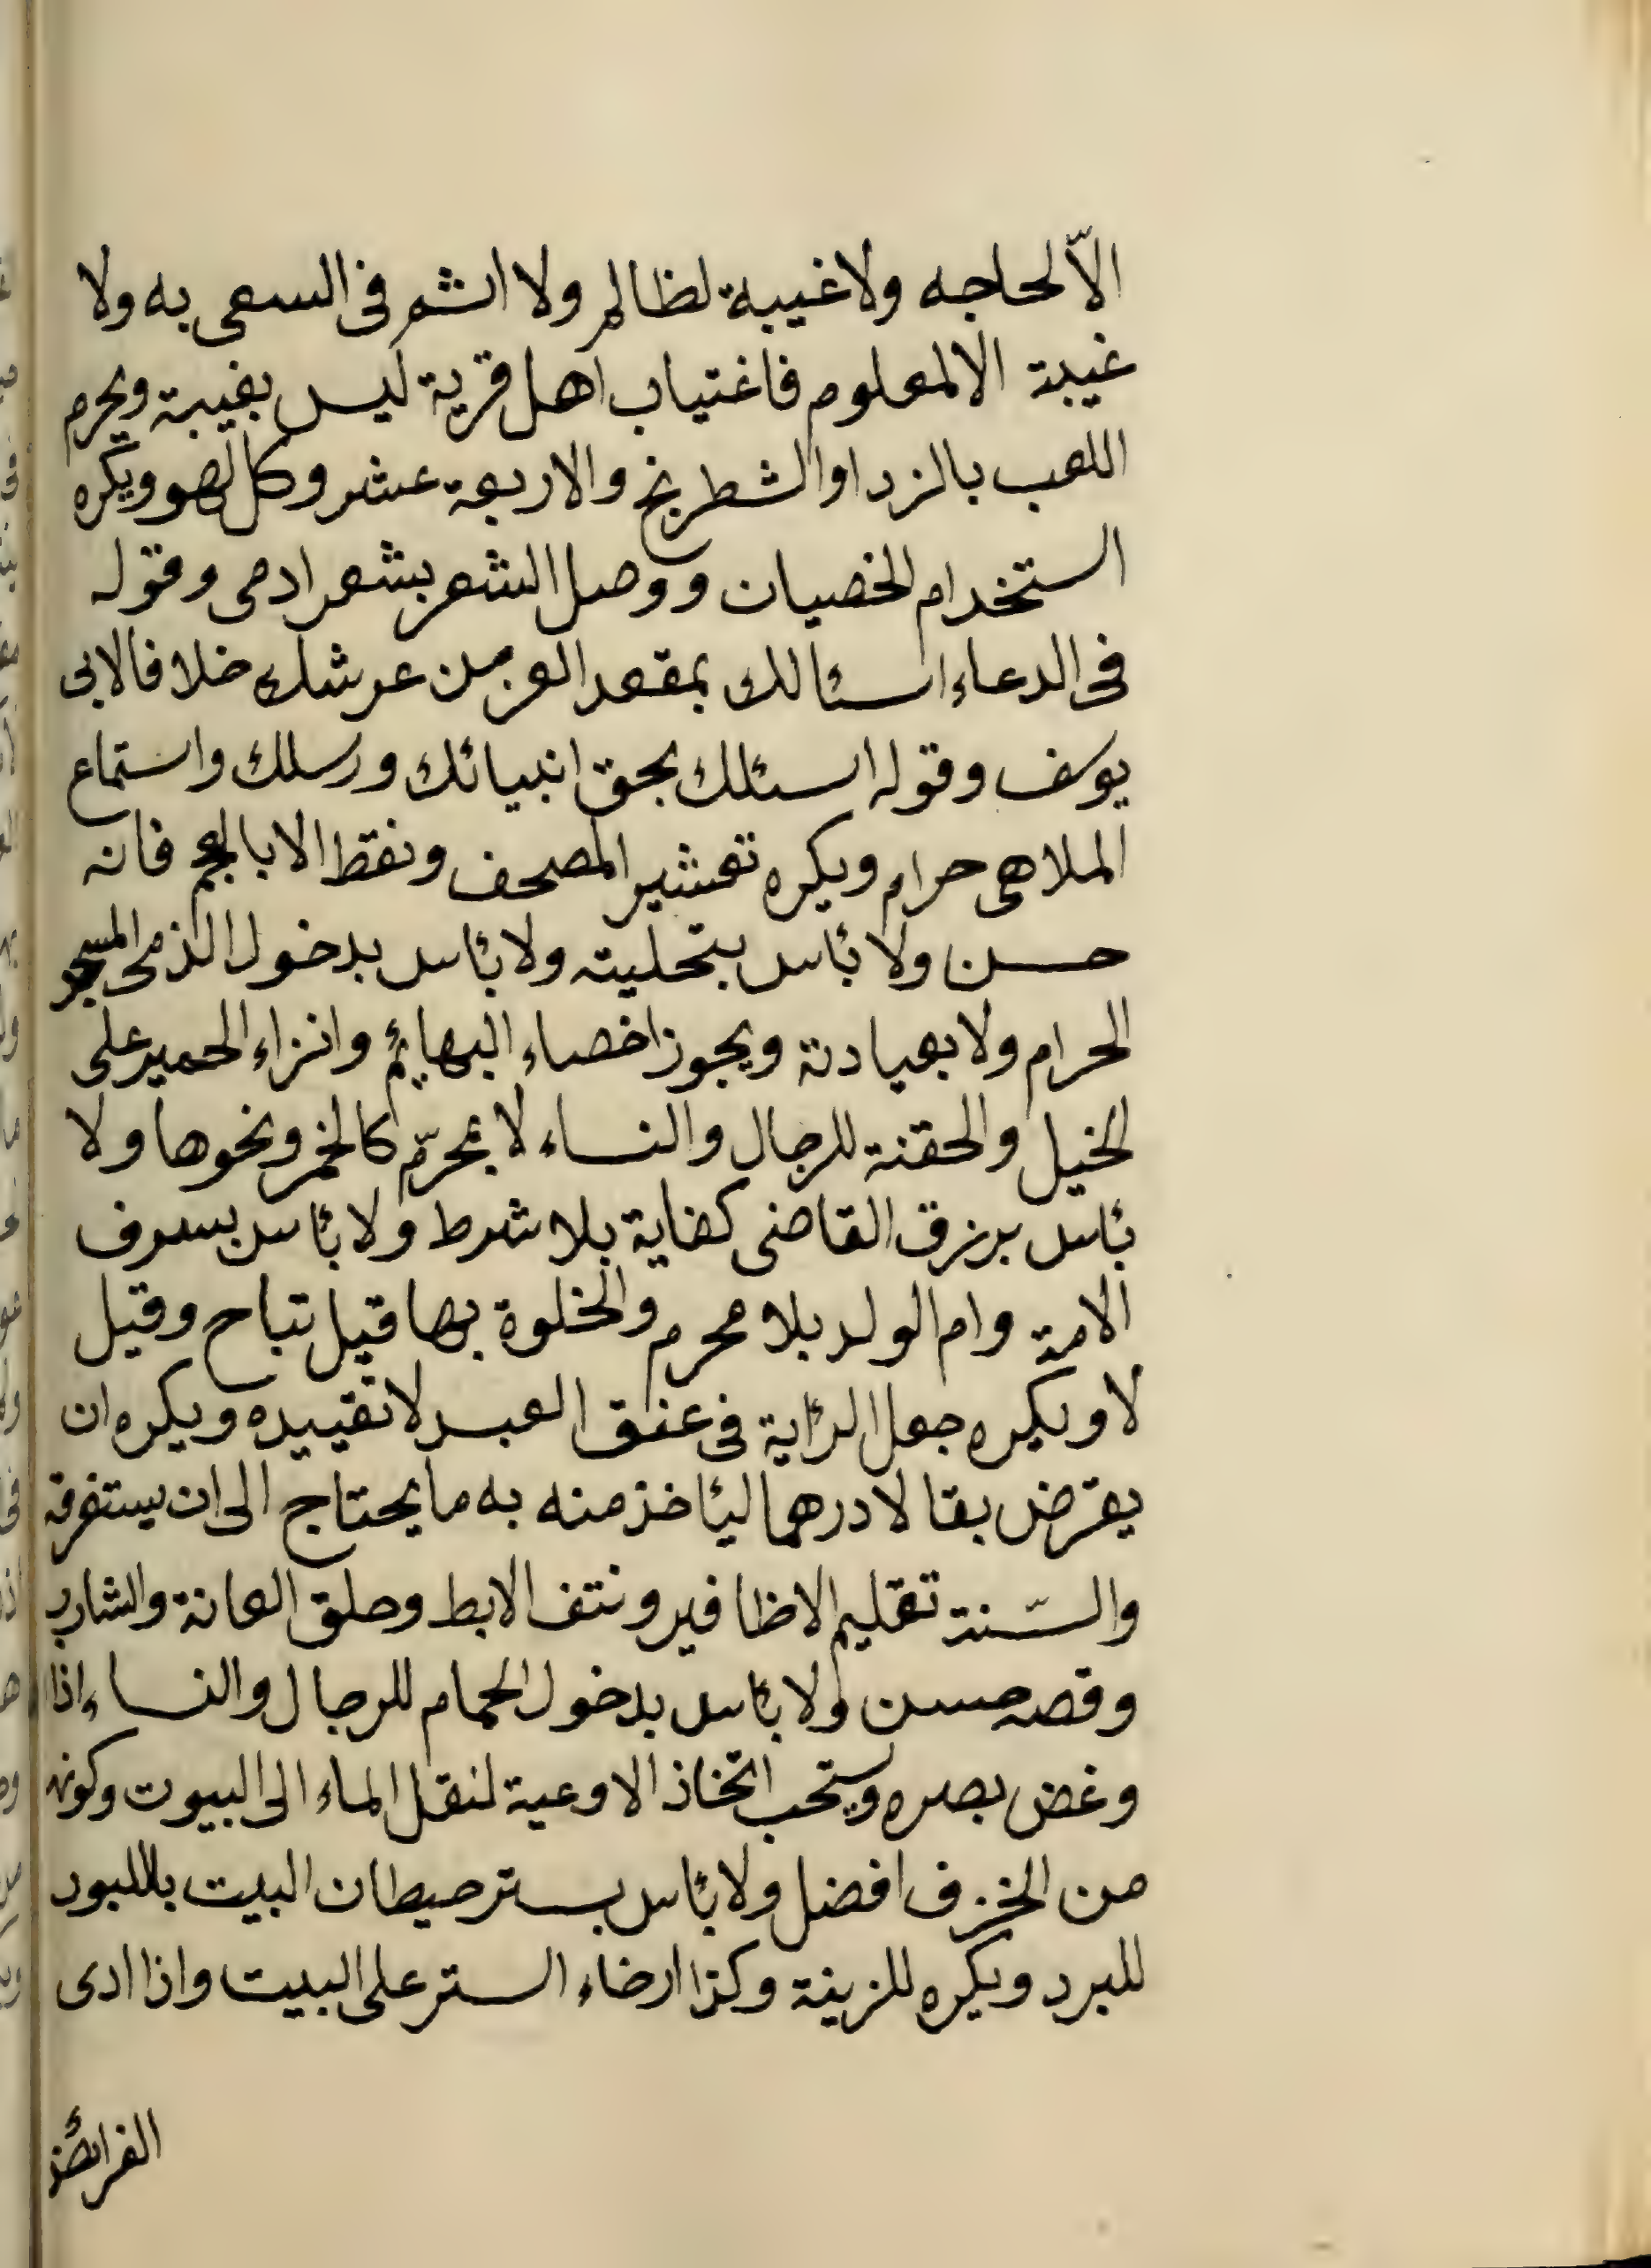 الّا لحاجه ولاغيبة لظالم ولا اثم فى السعى به ولا
غيبة الالمعلوم فاغتياب اهل قرية ليس بغيبة ويحرم
اللعب بالنرد اوالشطرنج والاربعة عشر وكل لهو ويكره
استخدام الخصيان و ووصل الشعر بشعر ادمى وقوله
فى الدعاء اسئالك بمقعد العز من عرشك خلافا لابى
يوسف وقوله اسئلك بحق انبيائك ورسلك واستماع
الملاهى حرام ويكره تعشير المصحف ونقط الابالعجم فانه
حسن ولا بئاس بتحليته ولا بئاس بدخول الذمى المسجد
الحرام ولا بعيادته ويجوز اخصاء البهائم وانزاء الحمير على
الخيل والحقنة للرجال والنساء لا بمحرّم كالخمر ونحوها ولا
بئاس برزق القاضى كفاية بلا شرط ولا بئاس بسرف
الامة وام الولد بلا محرم والخلوة بها قيل تباح وقيل
لا ويكره جعل الرئاية فى عنق العبد لا تقييده ويكره ان
يقرض بقالا درهما ليئاخذ منه به ما يحتاج الى ان يستغرقه
والسّنة تقليم الاظافير ونتف الابط وحلق العانة والشارب
وقصه حسن ولا بئاس بدخول الحمام للرجال والنساء اذا
وغض بصره ويستحب اتخاذ الاوعية لنقل الماء الى البيوت وكونه
من الخزف افضل ولا بئاس بستر حيطان البيت باللبود
للبرد ويكره للزينة وكذا ارخاء الستر على البيت واذا ادى
الفرائض